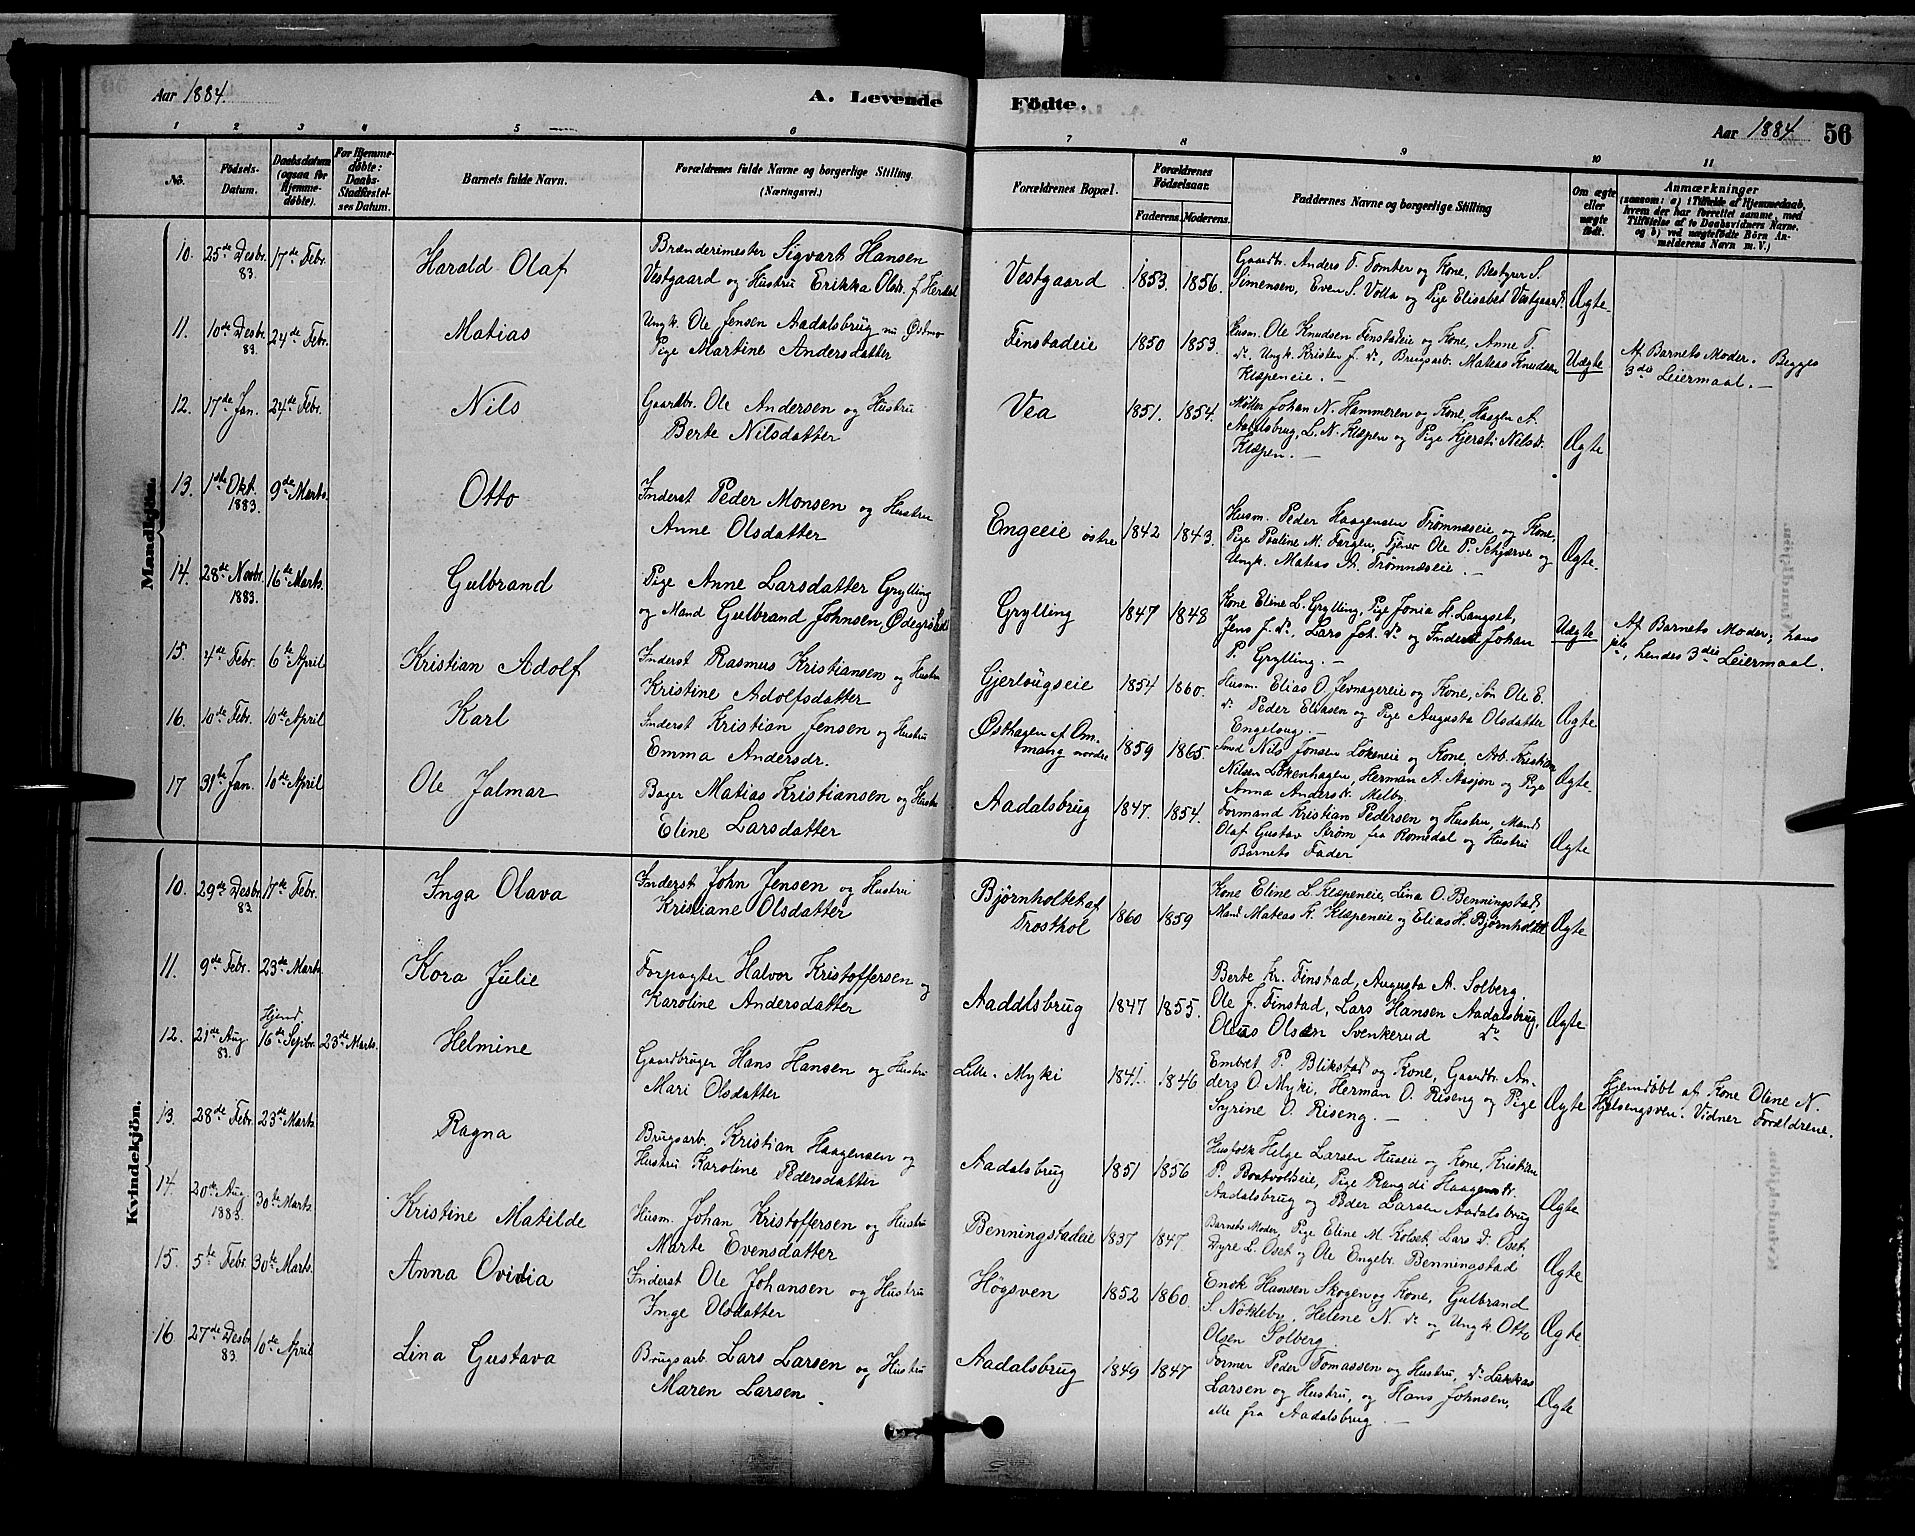 Aar 1884. A. Levende Födte. Aar 1884 56
1 2 3 4 5 6 7 8 9 10 11
No. Födsels-Datum. Daabsdatum (ogsaa for Hjemme-döbte). For Hjemme-döbte: Daabs-Stadfæstel-ses Datum. Barnets fulde Navn. Forældrenes fulde Navne og borgerlige Stilling. (Næringsvei.) Forældrenes Bopæl. Forældrenes Födselsaar. Faderens. Moderens. Faddernes Navne og borgerlige Stilling Om ægte eller uægte födt. Anmærkninger (saasom: a) i Tilfælde af Hjemmedaab, hvem der har forrettet samme, med Tilföielse af to Daabsvidners Navne. og b) ved uægtefödte Börn An-melderens Navn m. V.)
Mandkjön.
10. 25de Desbr. 83. 17de Febr. Harald Olaf
Brænderimester Sigvart Hansen
Vestgaard og Hustru Erikka Olstr. f Herdal
Vestgaard 1853. 1856.
Gaardbr. Anders T. Tomter og Kone, Bestyrer S.
Simensen, Even S. Volla og Pige Elisabet Vestgaard. Ægte.
11. 10de Desbr. 83. 24de Febr. Matias
Ungk. Ole Jensen Aadalsbrug nu Østmo
Pige Martine Andersdatter
Finstadeie 1850 1853.
Husm. Ole Knudsen Finstadeie og Kone, Anne T.
do Ungk. Kristen J. do, Brugsarb. Mateas Knudsen
Klæpeneie. — Uægte
Af Barnets Moder. Begges
3die Leiermaal. —
12. 17de Jan. 24de Febr. Nils
Gaardbr. Ole Andersen og Hustru
Berte Nilsdatter
Vea 1851. 1854.
Møller Johan N. Hammeren og Kone, Haagen A.
Aadalsbrug, L. N. Klæpen og Pige Kjersti Nilsd.
Klæpen. — Ægte
13. 1ste Okt. 1883. 9de Marts Otto
Inderst Peder Monsen og Hustru
Anne Olsdatter
Engeeie østre 1842 1843.
Husm. Peder Haagensen Trømnæseie og Kone,
Pige Pauline M. Fargen, Tjener Ole P. Schjærve og
Ungk. Mateas A. Trømnæseie. — Ægte.
14. 28de Novbr. 1883. 16de Marts. Gulbrand
Pige Anne Larsdatter Grylling
og Mand Gulbrand Johnsen, Ødegrstad
Grylling 1847 1848
Kone Eline L. Grylling, Pige Jonia H. Langset,
Jens J. do, Lars Joh. do og Inderst Johan
P. Grylling. — Uægte
Af Barnets Moder, hans
hendes 3die Leiermaal.
15. 4de Febr. 6te April Kristian Adolf
Inderst Rasmus Kristiansen og Hustru
Kristine Adolfsdatter
Gjerlougseie 1854 1860.
Husm. Elias O. Jevnagereie og Kone, Søn Ole E.
do Peder Eliasen og Pige Augusta Olsdatter
Engeloug. — Ægte
16. 10de Febr. 10de April Karl
Inderst Kristian Jensen og Hustru
Emma Andersdr.
Østhagen af Om-
mang nordre 1859 1865.
Smed Nils Jonsen Løkeneie og Kone, Arb. Kristian
Nilsen Løkenhagen, Herman A. Aasjon og Pige
Anna Andersdr. Melby. Ægte.
17 31te Jan. 10de April Ole Jalmar
Bager Matias Kristiansen og Hustru
Eline Larsdatter
Aadalsbrug 1847. 1854.
Formand Kristian Pedersen og Hustru, Mand
Olaf Gustav Strøm fra Romedal og Hustru
Barnets Fader Ægte
Kvindekjön.
10. 29de Desbr. 83 17de Febr. Inga Olava
Inderst John Jensen og Hustru
Kristiane Olsdatter
Bjørnholtet af
Trosthol 1860 1859
Kone Eline L. Klæpeneie, Lina O. Benningstad,
Mand Mateas K. Klæpeneie og Elias H. Bjørnholtet Ægte
11. 9de Febr. 23de Marts. Kora Julie
Forpagter Halvor Kristoffersen og
Karoline Andersdatter
Aadalsbrug 1847 1855.
Berte Kr. Finstad, Augusta A. Solberg,
Ole J. Finstad, Lars Hansen Aadalsbrug,
Olaus Olsen Svenkerud do Ægte
12. 21de Aug 83. Hjemd 16de Septbr. 23de Marts. Helmine
Gaardbruger Hans Hansen og Hustru
Mari Olsdatter
Lille-Myki 1841. 1846
Embret P. Blikstad og Kone, Gaardbr. An-
ders O Myki, Herman O. Riseng og Pige
Syrine O. Riseng. — Ægte
Hjemdøbt af Kone Olene N.
Hjelsengsven. Vidner Forældrene.
13. 28de Febr. 23de Marts. Ragna
Brugsarb. Kristian Haagensen og
Hustru Karoline Pedersdatter
Aadalsbrug 1851 1856
Husfolk Helge Larsen Huseie og Kone, Kristian
P. Baatvolteie, Pige Rangdi Haagensdr.
Aadalsbrug og Peder Larsen Aadalsbrug Ægte
14. 20de Aug 1883. 30te Marts Kristine Matilde
Husm. Johan Kristoffersen og Hustru
Marte Evensdatter
Benningstadeie 1837 1847.
Barnets Moder, Pige Eline M. Kolset, Lars D. Oset,
Dyre L. Oset og Ole Engebr. Benningstad Ægte
15. 5te Febr. 30te Marts. Anna Ovidia
Inderst Ole Johansen og Hustru
Inge Olsdatter
Høgsven 1852 1860.
Enok Hansen Skogen og Kone, Gulbrand
S. Nökleby, Helene N. do og Ungk. Otto
Olsen Solberg. Ægte.
16 27de Desbr 83. 10de April Lina Gustava
Brugsarb. Lars Larsen og Hustru
Maren Larsen.
Aadalsbrug 1849 1847
Former Peder Tomassen og Hustru, do Lukkas
Larsen og Hustru, og Hans Johnsen,
alle fra Aadalsbrug. — Ægte